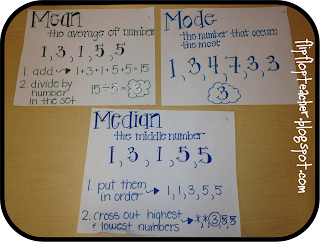 Mean
the average of numbers
1, 3, 1, 5, 5
1. add → 1+3+1+5+5=15
2. divide by
number
in the set
15÷5=3
Mode
the number that occurs
the most
1, 3, 4, 7, 3, 3
3
Median
the middle number
1, 3, 1, 5, 5
1. put them
in order → 1, 1, 3, 5, 5
2. cross out highest
& lowest numbers → 1, 1, 3, 5, 5
flipflopteacher.blogspot.com